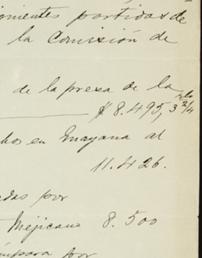 nientes partidas de
la Comisión de
de la presa de la
$ 8.495, 3 2/4
hos en Guayana al
11.426.
das por
Mejicano 8.500
por